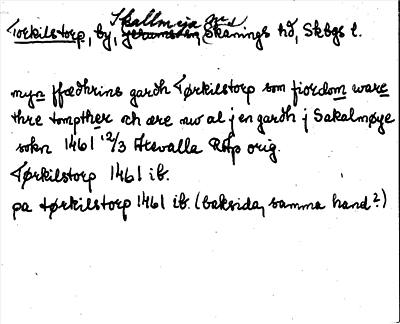 Skallmeja sn
Torkilstorp, by, Skånings hd, Skbgs l.
myn ffædhrins gardh Tørkilstorp som fiordom ware
thre tompther och ære nw al j en gardh j Skalmøye
sokn 1461 12/3 Hewalla RAp orig.
Tørkilstorp 1461 ib.
pa tørkilstorp 1461 ib. (baksida, samma hand?)